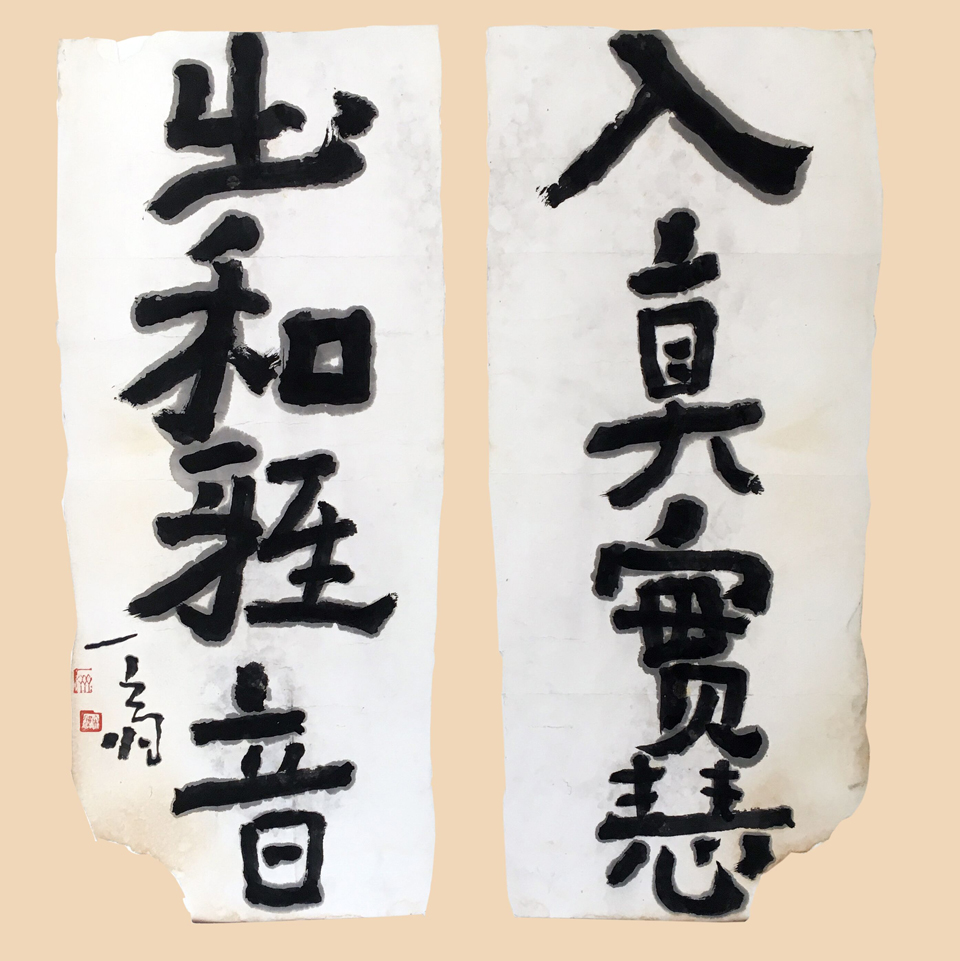 入真實慧
出和雅音